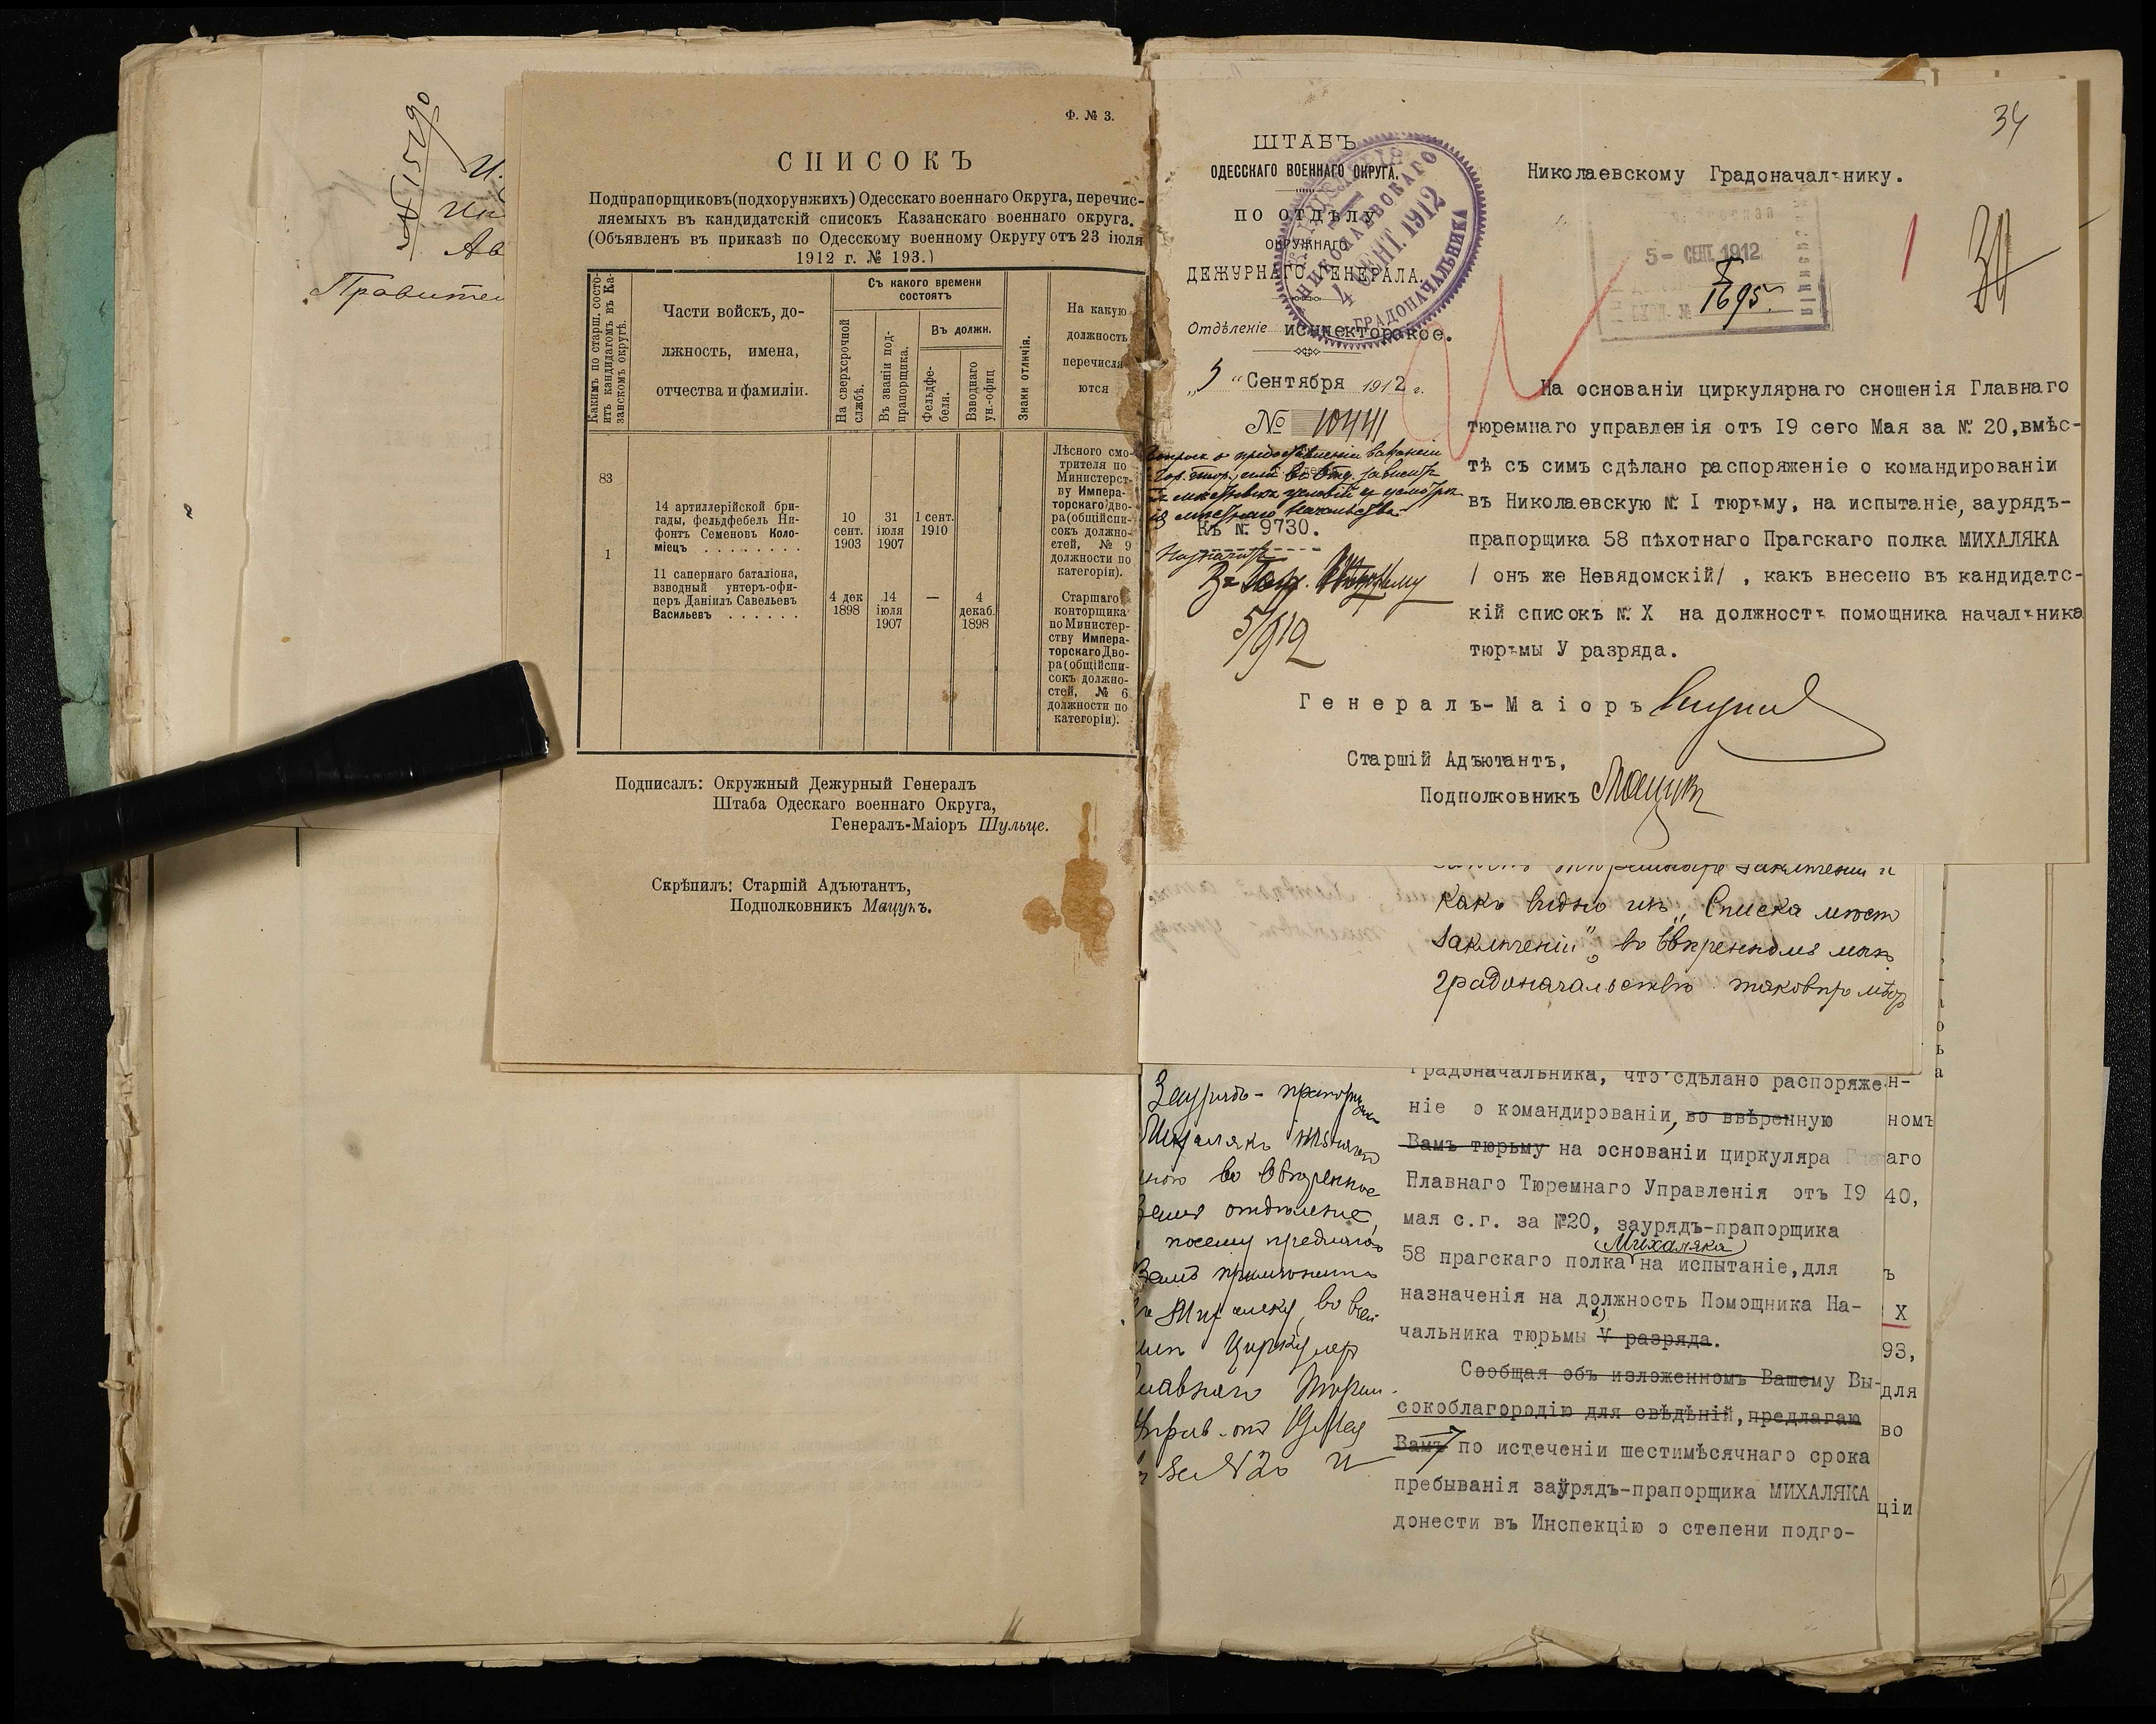 № 1590
Правител
Ф. № 3.
СПИСОКЪ
Подпрапорщиковъ(подхорунжихъ) Одесскаго военнаго Округа, перечис-
ляемыхъ въ кандидатскій списокъ Казанскаго военнаго округа.
(Объявленъ въ приказѣ по Одесскому военному Округу отъ 23 іюля
1912 г. № 193.)
Какимъ по старш. состо-
итъ кандидатомъ въ Ка-
занскомъ округѣ.
Части войскъ, до-
лжность, имена,
отчества и фамиліи.
Съ какого времени
состоятъ
На сверхсрочной
службѣ.
Въ званіи под-
прапорщика.
Въ должн.
Фельдфе-
беля.
Взводнаго
ун.-офиц
Знаки отличія.
На какую
должность
перечисля-
ются
83
14 артиллерійской бри-
гады, фельдфебель Ни-
фонтъ Семеновъ Коло-
міецъ . . . . . . . .
10
сент.
1903
31
іюля
1907
1 сент.
1910
Лѣсного смо-
трителя по
Министерст-
ву Импера-
торскаго дво-
ра(общій спи-
сокъ должно-
стей, № 9
должности по
категоріи).
1
11 сапернаго баталіона,
взводный унтеръ-офи-
церъ Даніилъ Савельевъ
Васильевъ . . . . . .
4 дек
1898
14
іюля
1907
—
4
декаб.
1898
Старшаго
конторщика
по Министер-
ству Импера-
торскаго Дво-
ра(общій спи-
сокъ должно-
стей, № 6
должности по
категоріи).
Подписалъ: Окружный Дежурный Генералъ
Штаба Одескаго военнаго Округа,
Генералъ-Маіоръ Шульце.
Скрѣпилъ: Старшій Адъютантъ,
Подполковникъ Мацукъ.
34
ШТАБЪ
ОДЕССКАГО ВОЕННАГО ОКРУГА.
ПО ОТДѢЛУ
ОКРУЖНАГО
ДЕЖУРНАГО ГЕНЕРАЛА.
Отдѣленіе инспекторское.
„3 “ Сентября 1912 г.
№ 10441
НИКОЛАЕВСКАГО
4 СЕНТ. 1912
ГРАДОНАЧАЛЬНИКА
Николаевскому Градоначальнику.
5- СЕНТ. 1912
1695.
Къ № 9730.
5/9 12
На основаніи циркулярнаго сношенія Главнаго
тюремнаго управленія отъ 19 сего Мая за № 20,вмѣс-
тѣ съ симъ сдѣлано распоряженіе о командированіи
въ Николаевскую № I тюрьму, на испытаніе, заурядъ-
прапорщика 58 пѣхотнаго Прагскаго полка МИХАЛЯКА
/ онъ же Невядомскій/ , какъ внесено въ кандидатс-
кій списокъ № X на должность помощника начальника
тюрьмы У разряда.
Генералъ-Маіоръ
Старшій Адъютантъ,
Подполковникъ Мацукъ
какъ видно изъ „Списка мѣст
заключеній“ во ввѣренномъ мнѣ
градоначальствѣ
Заурядъ-прапорщ
Михалякъ
во ввѣренное
Вамъ отдѣленіе,
посему предлагаю
Вамъ примѣнить
Михаляку, во
циркуляр
Главнаго Тюрем.
Управ. отъ 19 Мая
за №20 и
градоначальника, что сдѣлано распоряжен-
ніе о командированіи, во ввѣренную
Вамъ тюрьму на основаніи циркуляра
Главнаго Тюремнаго Управленія отъ 19
мая с.г. за №20, заурядъ-прапорщика
58 прагскаго полка (Михаляка) на испытаніе, для
назначенія на должность Помощника На-
чальника тюрьмы V разряда.
Сообщая объ изложенномъ Вашему Вы-
сокоблагородію для свѣдѣній, предлагаю
Вамъ по истеченіи шестимѣсячнаго срока
пребыванія заурядъ-прапорщика МИХАЛЯКА
донести въ Инспекцію о степени подго-
номъ
аго
40,
ъ
X
93,
для
во
ціи